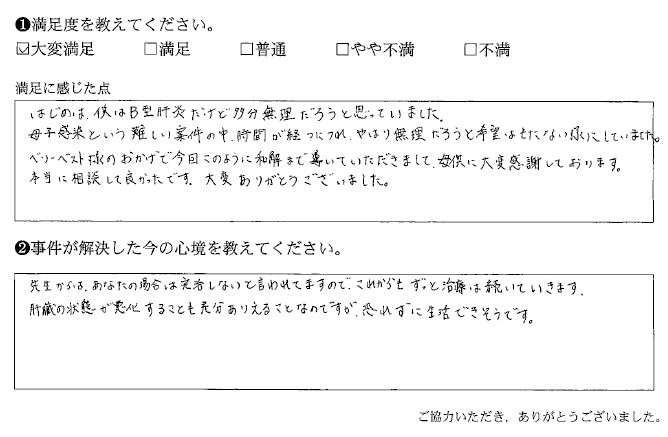 ❶満足度を教えてください。
☑大変満足 □満足 □普通 □やや不満 □不満
満足に感じた点
はじめは、僕はB型肝炎だけど多分無理だろうと思っていました。
母子感染という難しい案件の中、時間が経つにつれ、やはり無理だろうと希望はもたない様にしていました。
ベリーベスト様のおかげで今回このように和解まで導いていただきまして、母供に大変感謝しております。
本当に相談して良かったです。大変ありがとうございました。
❷事件が解決した今の心境を教えてください。
先生からは、あなたの場合は完治しないと言われてますので、これからもずっと治療は続いていきます。
肝臓の状態が悪化することも充分ありえることなのですが、恐れずに生活できそうです。
ご協力いただき，ありがとうございました。